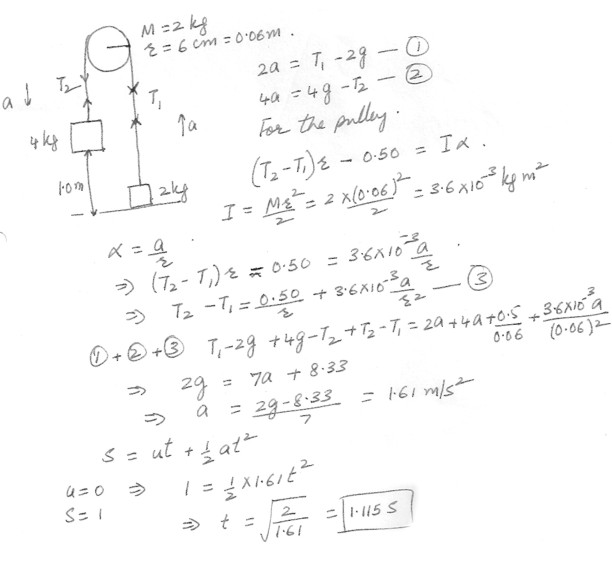 M = 2 kg
r = 6 cm = 0.06m.
T₂
T₁
a ↓
↑a
4 kg
1.0m
2kg
2a = T₁ - 2g — ①
4a = 4g - T₂ — ②
For the pulley.
(T₂ - T₁) r - 0.50 = Iα.
I = Mr²/2 = 2 × (0.06)²/2 = 3.6 × 10⁻³ kg m²
α = a/r
⇒ (T₂ - T₁) r = 0.50 = 3.6×10⁻³ a/r.
⇒ T₂ - T₁ = 0.50/r + 3.6×10⁻³ a/r² — ③
① + ② + ③ T₁ - 2g + 4g - T₂ + T₂ - T₁ = 2a + 4a + 0.5/0.06 + 3.6×10⁻³ a/(0.06)²
⇒ 2g = 7a + 8.33
⇒ a = 2g - 8.33/7 = 1.61 m/s²
s = ut + ½ at²
u = 0 ⇒ 1 = ½ × 1.61 t²
S = 1 ⇒ t = √2/1.61 = 1.115 S